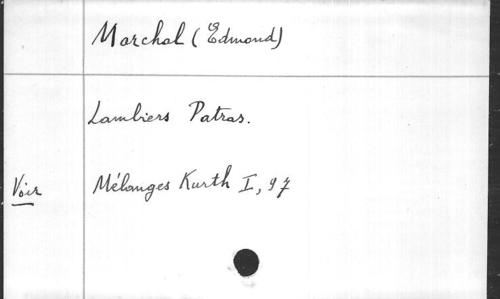 Marchal (Edmond)
Lambiers Patras.
Voir Mélanges Kurth I, 97